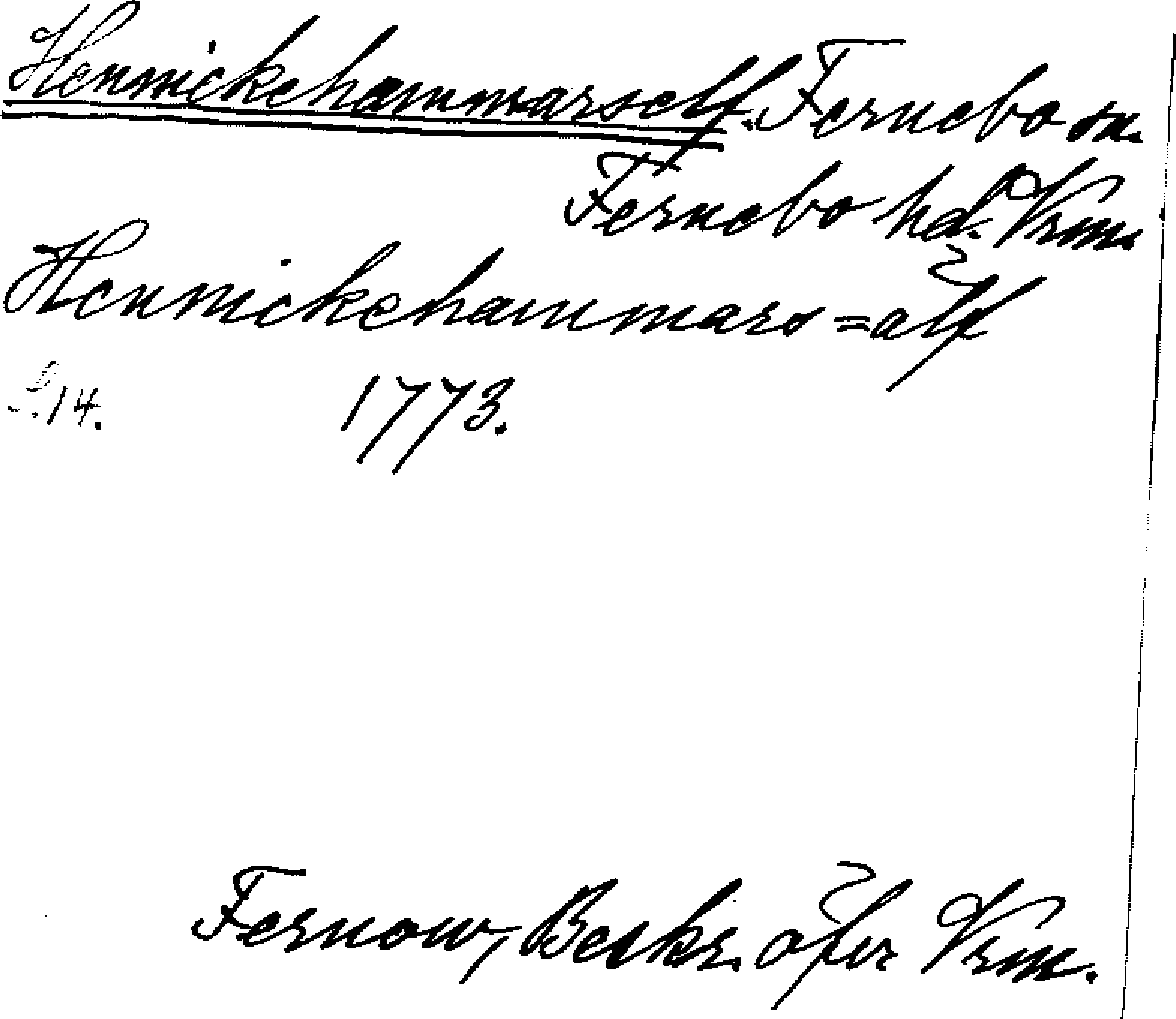 Hennickehammarself. Fernebo sn.
Fernebo hd. Vrm.
Hennickehammars=älf
S. 14. 1773.
Fernow, Beskr. öfver Vrm.